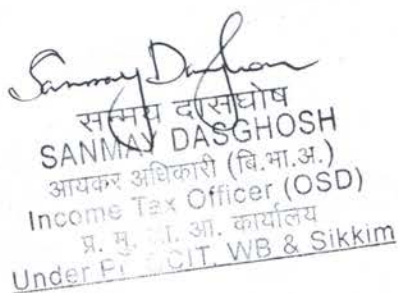 Sanmay Dasghosh
सन्मय दासघोष
SANMAY DASGHOSH
आयकर अधिकारी (वि.भा.अ.)
Income Tax Officer (OSD)
प्र. मु. आ. कार्यालय
Under Pr. CCIT, WB & Sikkim